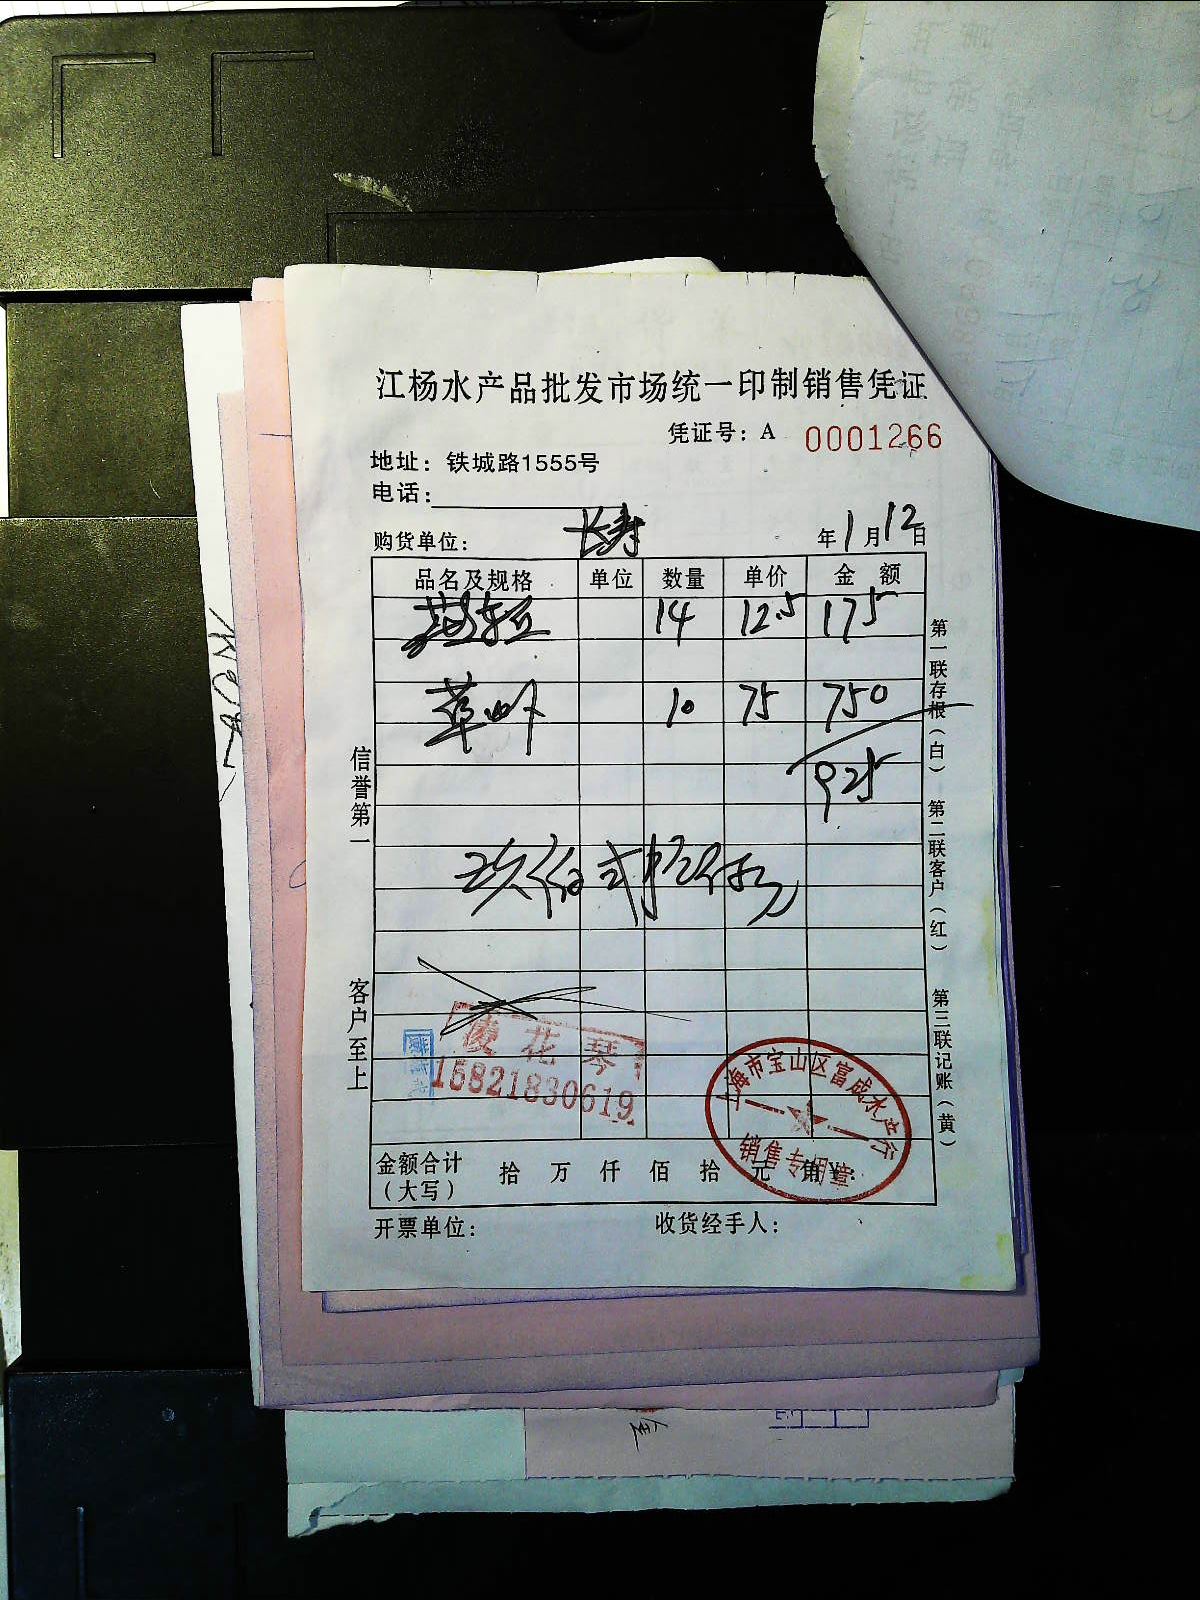 江杨水产品批发市场统一印制销售凭证
凭证号：A 0001266
地址：铁城路1555号
电话：
购货单位： 长寿 年1月12日
品名及规格 单位 数量 单价 金额
14 12.5 175
草虾 10 75 750
925
玖佰贰拾伍元
信誉第一
客户至上
第一联存根（白）
第二联客户（红）
第三联记账（黄）
凌花琴
15821830619
上海市宝山区富成水产行
销售专用章
金额合计（大写） 拾 万 仟 佰 拾 元 角 ¥：
开票单位： 收货经手人：